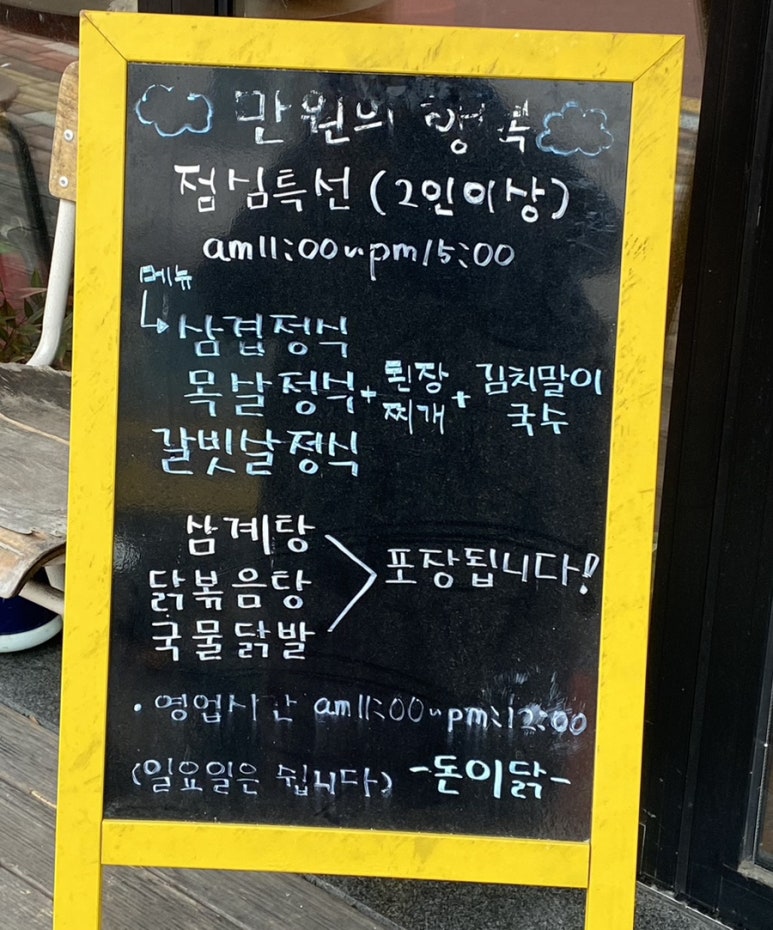 만원의 행복
점심특선 (2인이상)
am11:00~pm15:00
메뉴
삼겹정식
목살정식 + 된장찌개 + 김치말이국수
갈빗살정식
삼계탕
닭볶음탕
국물닭발
포장됩니다!
· 영업시간 am11:00~pm:12:00
(일요일은 쉽니다) -돈이닭-